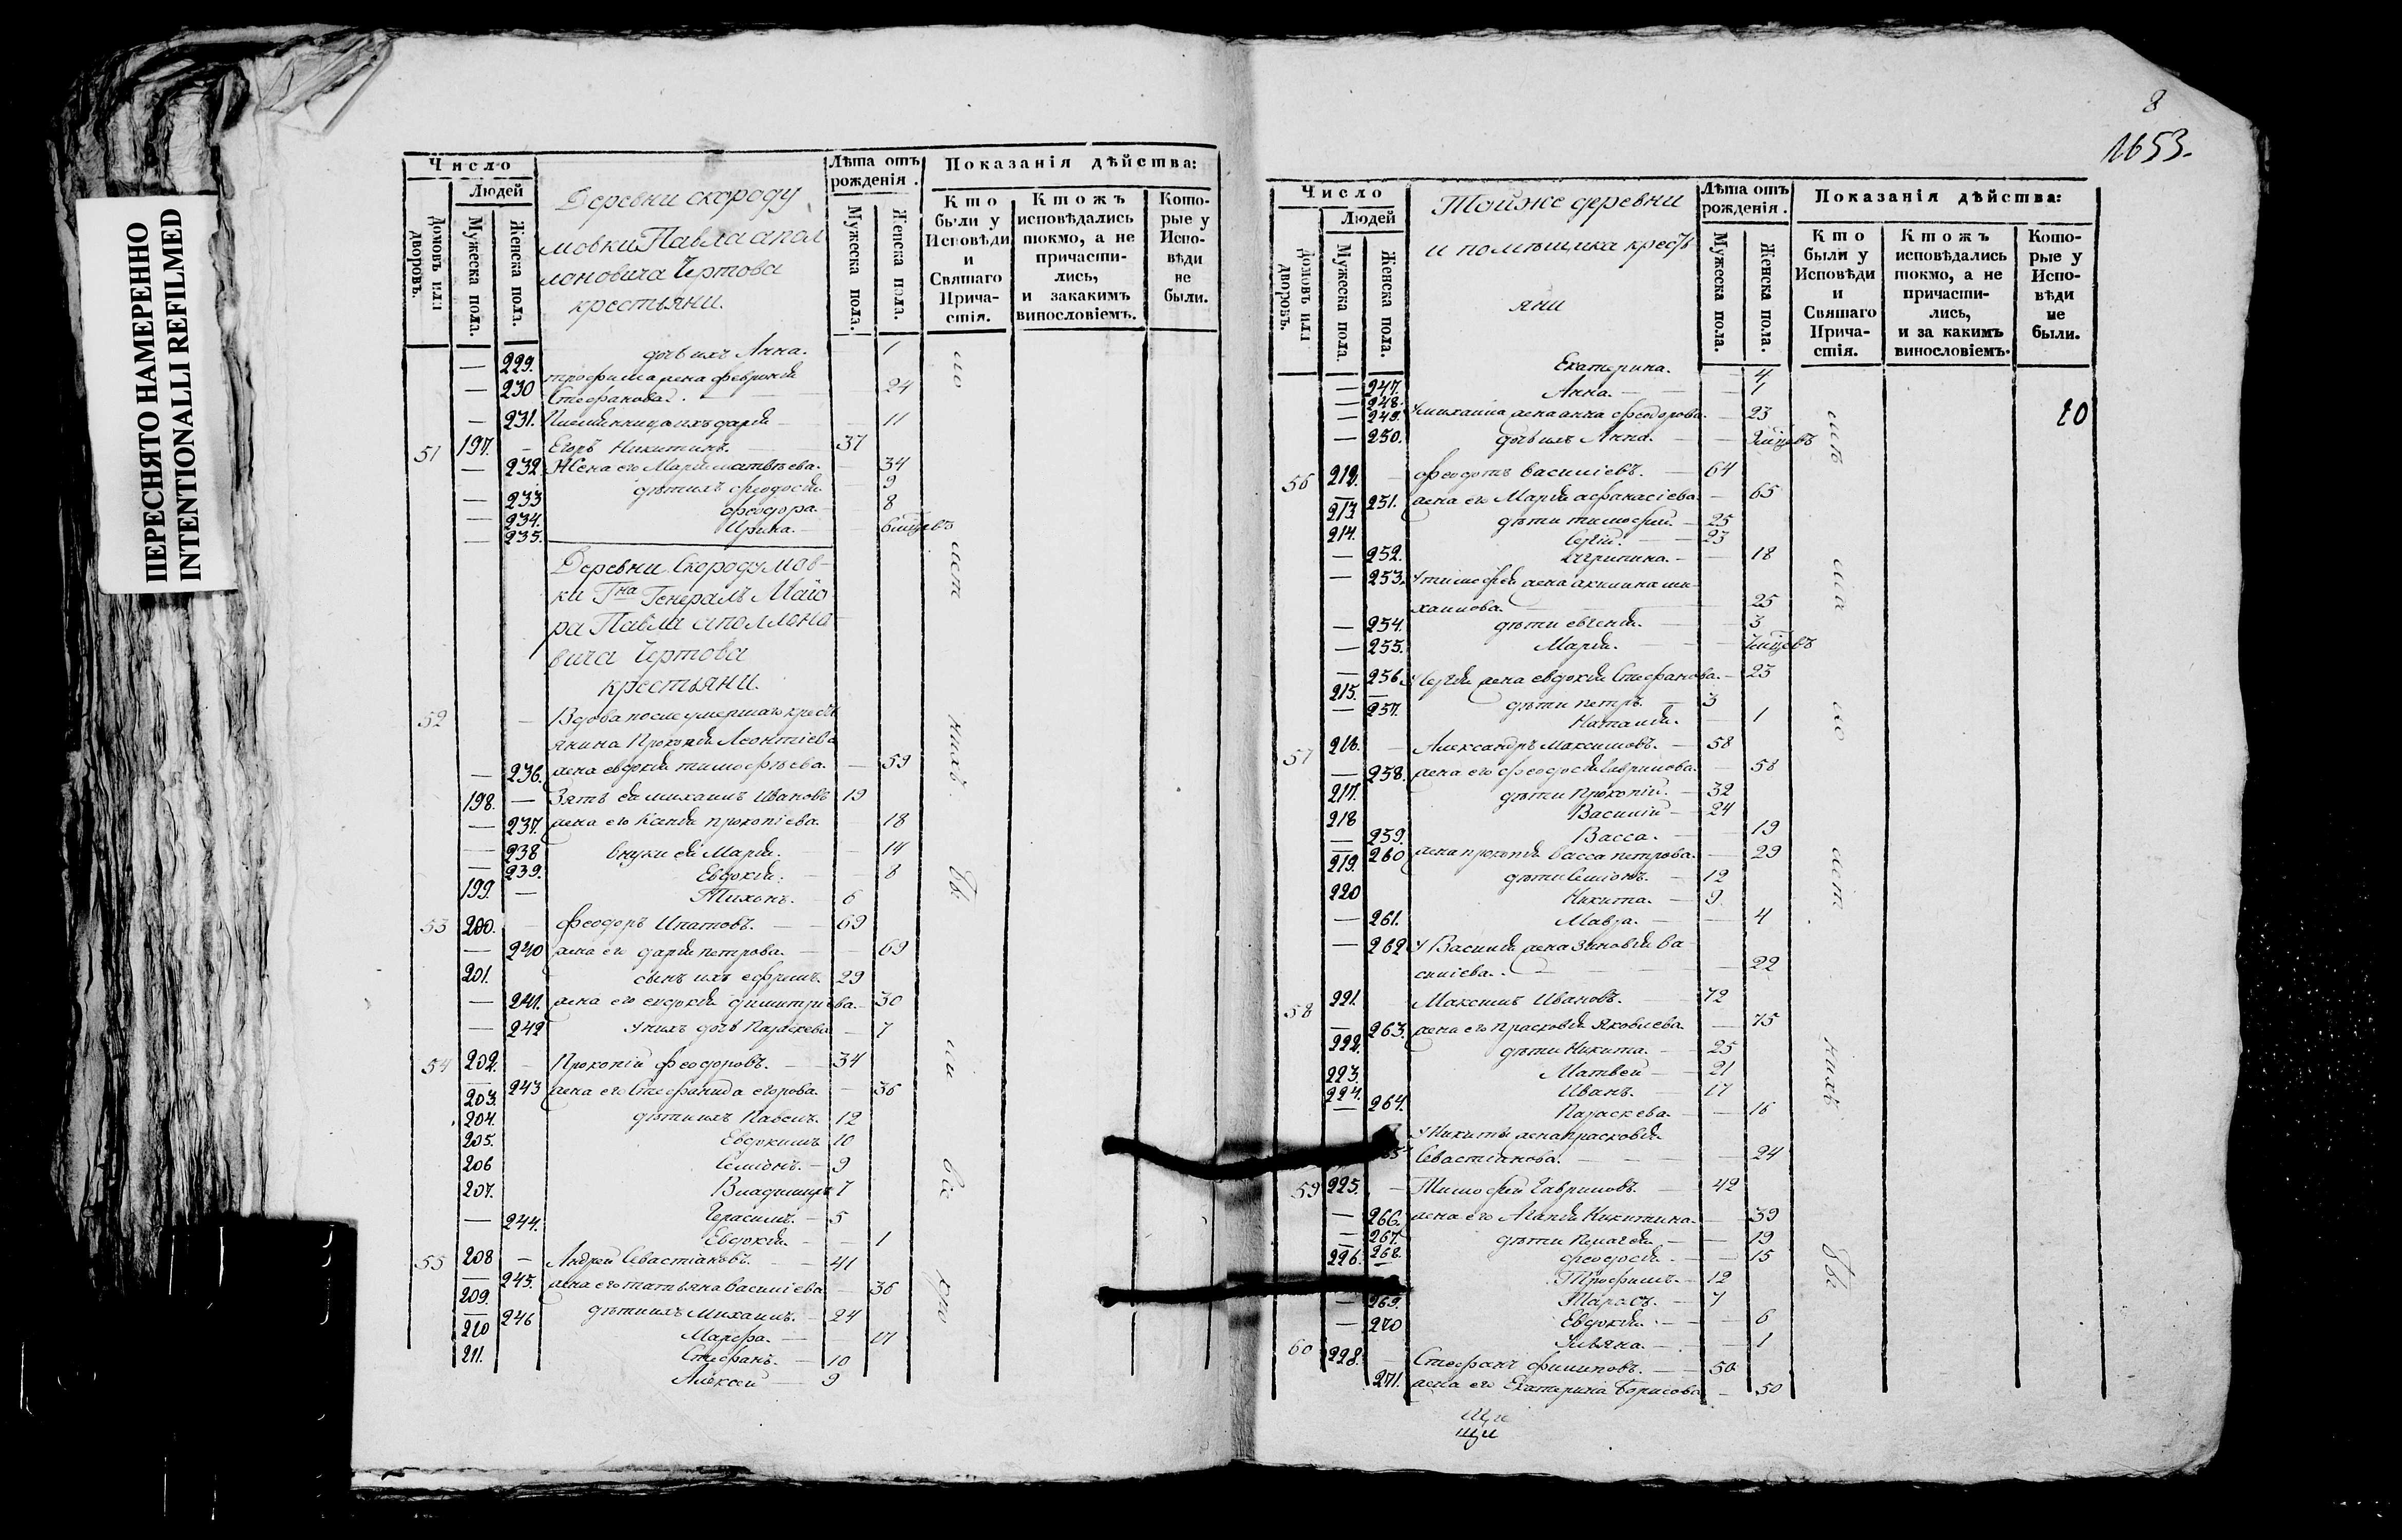 ПЕРЕСНЯТО НАМЕРЕННО
INTENTIONALLI REFILMED
Число
Людей
Домовъ или дворовъ.
Мужеска пола.
Женска пола.
Деревни скороду
мовки Павла апол
лоновича Чертова
крестьяни.
Лѣта отъ рожденія.
Мужеска пола.
Женска пола.
Показанія дѣйства:
Кто были у Исповѣди и Святаго Прича-стія.
Ктожъ исповѣдались токмо, а не причасти-лись, и закакимъ винословіемъ.
Кото-рые у Испо-вѣди не были.
— 229. дочь ихъ Анна. 1
— 230 трофима жена февронія
Стефанова. — 24
— 231. Племянница ихъ дарія — 11
51 197. — Егоръ Никитинъ. — 37
— 232. Жена его Марія матвѣева. — 34
— 233 дѣти ихъ феодосія — 9
— 234. феодора. 8
— 235. Ирина. — 6 мцовъ
Деревни Скородумов-
ки Гна Генералъ Маіо
ра Павла аполлоно
вича Чертова
крестьяни.
52 — Вдова после умершаго кресть
янина Прокопія Леонтіева
— 236. жена евдокія тимофѣева. — 59
198. — Зять ея михаилъ Ивановъ 19
— 237. жена его Ксенія прокопіева. 18
— 238 внуки ея Марія. — 14
— 239. Евдокія. — 8
199. — Тихонъ. — 6
53 200. — феодоръ Ипатовъ. — 69
— 240 жена его дарія петрова. — 69
201. сынъ ихъ ефримъ. 29
— 241. жена его евдокія димитріева. — 30
— 242 у нихъ дочь Параскева — 7
54 202. — Прокопій феодоровъ. — 34
— 243 жена его Стефанида егорова. — 36
203.
204. дѣти ихъ Павелъ. 12
205. Евдокимъ 10
206 Семіонъ. — 9
207. Владимиръ 7
— 244. Герасимъ. — 5
Евдокія. — 1
55 208 — Андрей Севастіановъ. — 41
— 245. жена его татьяна Василіева — 36
209.
— 246 дѣти ихъ Михаилъ. — 24
210 Марфа. — 17
211. Стефанъ. — 10
Алексей — 9
8
1653.
Число
Людей
Домовъ или дворовъ.
Мужеска пола.
Женска пола.
Тойже деревни
и помѣщика кресть
яни
Лѣта отъ рожденія.
Мужеска пола.
Женска пола.
Показанія дѣйства:
Кто были у Исповѣди и Святаго Прича-стія.
Ктожъ исповѣдались токмо, а не причасти-лись, и за какимъ винословіемъ.
Кото-рые у Испо-вѣди не были.
— 247. Екатерина. — 4
— 248. Анна. — 1
— 249. У михаила жена анна феодорова. — 23
20
— 250. дочь ихъ Анна. — мцовъ
56 212. — феодотъ василіевъ. — 64
— 251. жена его Марія афанасіева. — 65
213. дѣти тимофей. — 25
214. Сергій. — 23
— 252. Агрипина. — 18
— 253. У тимофея жена акилина ми
хаилова. — 25
— 254. дѣти евгенія. — 3
— 255. Марія. — мцовъ
— 256. У Сергія жена евдокія Стефанова. — 23
215. — дѣти петръ — 3
— 257. Наталія. — 1
57 216. — Александръ максимовъ. — 58
— 258. жена его феодосія гаврилова. — 58
217. дѣти Прокопій. — 32
218 Василий — 24
— 259. Васса. — 19
— 260 жена прокопія васса петрова. — 29
219. дѣти Семіонъ. — 12
220 Никита. — 9
— 261. Мавра. — 4
— 262 У Василія жена Зиновія ва
силіева. — 22
58 221. Максимъ Ивановъ. — 72
— 263. жена его прасковія Яковлева. — 75
222. дѣти Никита. — 25
223. Матвей — 21
224. Иванъ. — 17
— 264. Параскева. — 16
У Никиты жена прасковія
Севастіанова. — 24
59 225. — Тимофей гавриловъ. — 42
— 266. жена его Агапія Никитина. — 39
— 267. дѣти Пелагея. — 19
226. 268. феодосія. — 15
Трофимъ. — 12
— 269. Тарасъ. — 7
— 270 Евдокія. — 6
Ульяна. — 1
60 228. — Стефанъ филиповъ. — 50
271. жена его Екатерина Борисова — 50